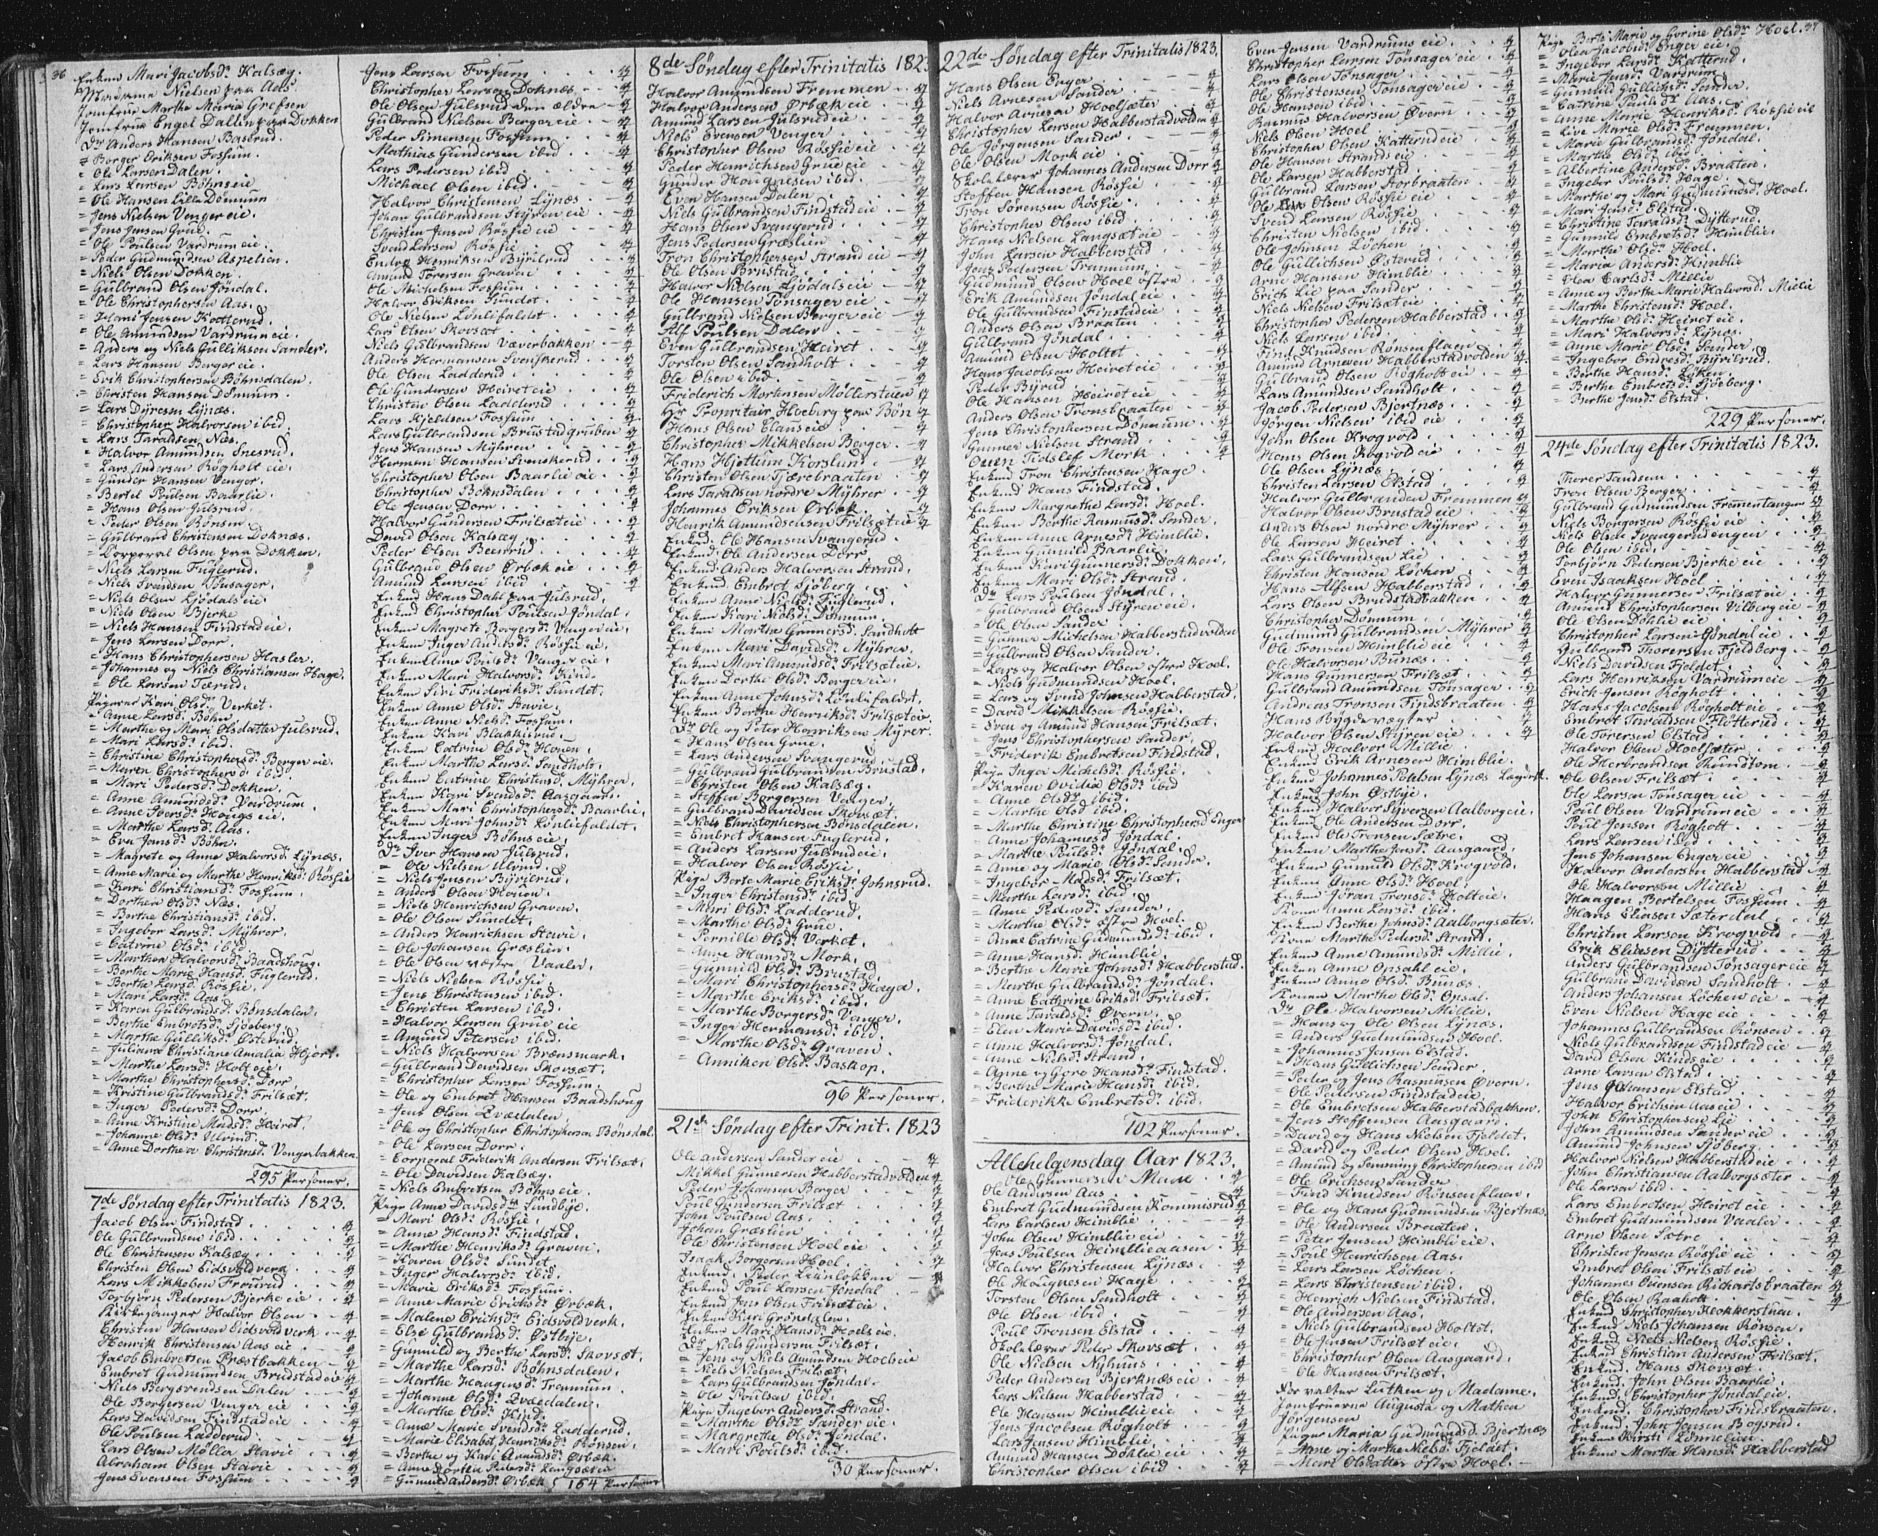 36
Enken Mari Jacobsdr Kalsæg.
Madame Nielsen paa Aas
Jomfrue Marthe Marie Grefsen
Jomfrue Engel Dallin paa Dokken
Dr Anders Hansen Baslrud
= Borger Eriksen Fossum.
= Ole Larsen Dalen.
= Lars Larsen Böhns eie
= Ole Hansen Lille Dömum
= Jens Nielsen Venger eie.
= Jens Jensen Grue.
= Ole Poulsen Vardrum eie.
= Peder Gudmundsen Aspelien.
= Niels Olsen Dokken.
= Gulbrand Olsen Jöndal.
= Ole Christophersen Aas.
= Hans Jensen Katterud.
= Ole Amundsen Vardrum eie.
= Anders og Niels Gulliksen Sander.
= Lars Hansen Berger eie.
= Erik Christophersen Böhnsdalen.
= Christen Hansen Dömum.
= Lars Dyresen Lynæs.
= Christopher Halvorsen ibid.
= Lars Taraldsen Næs.
= Halvor Amundsen Snesrud.
= Lars Andersen Rögholt eie.
= Gunder Hansen Venger.
= Bertel Poulsen Baarlie.
= Hans Olsen Julsrud.
= Peder Olsen Rönsen.
= Gulbrand Christensen Doknæs.
= Corporal Olsen paa Dokken.
= Niels Larsen Fuglerud.
= Niels Olsen Ljödals eie.
= Niels Olsen Bjerke.
= Niels Hansen Findstad eie.
= Jens Larsen Dorr.
= Hans Christophersen Hasler.
= Johannes og Niels Christiansen Hage.
= Ole Larsen Tærud.
Pigerne Kari Olsdr Verket.
= Anne Larsdr Böhn
= Marthe og Mari Olsdatter Julsrud.
= Mari Larsdr ibid.
= Christine Christophersdr Berger eie.
= Maren Christophersdr ibid.
= Mari Pedersdr Dokken.
= Anne Amundsdr Vardrum.
= Anne Iversdr Hougs eie.
= Marthe Larsdr Aas.
= Eva Jensdr Böhn.
= Magrete og Anne Halvorsdr Lynæs.
= Anne Marie og Marthe Henriksdr Rösfie
= Kari Christiansdr Fossum.
= Dorthea Olsdr Næs.
= Berthe Christiansdr ibid.
= Ingebor Larsdr Myhrer.
= Catrine Olsdr ibid.
= Marthea Halvorsdr Baadshoug.
= Berthe Marie Hansdr Fuglerud.
= Berthe Larsdr Rösfie.
= Mari Larsdr Aas.
= Karen Gulbrandsdr Bönsdalen.
= Berthe Embretsdr Sjöberg.
= Marthe Gulliksdr Østerud.
= Juliane Christiane Amalia Hjort.
= Marthe Larsdr Holt eie.
= Marthe Christophersdr Dorr.
= Kristine Gulbrandsdr Frilsæt.
= Inger Pedersdr Dorr.
= Anne Kristine Madsdr Heiret.
= Johanne Olsdr Ulvind.
= Anne Dorthea Christensdr Vengerbakken.
295 Personer.
7de Søndag efter Trinitatis 1823.
Jacob Olsen Findstad
Ole Gulbrandsen ibid.
Ole Christensen Kalsæg
Christen Olsen Eidsvoldverk
Lars Mikkelsen Frourud
Torbjörn Pedersen Bjerke eie
Kirkesanger Halvor Olsen
Christen Hansen Eidsvoldverk
Henrik Christensen Aas eie
Jacob Embretsen Præstbakken
Embret Gudmundsen Brudstad eie
Niels Bergsvendsen Dalen
Ole Borgersen Venger eie
Lars Davidsen Findstad eie
Ole Poulsen Ladderud
Lars Olsen Møller Stavie
Abraham Olsen Stavie
Jens Svensen Fossum
Jens Larsen Fossum
Christopher Larsen Doknæs
Ole Olsen Julsrud den ældre
Gulbrand Nielsen Berger eie
Peder Simensen Fossum
Mathias Gundersen ibid
Lars Pedersen ibid
Michael Olsen ibid
Halvor Christensen Lynæs
Johan Gulbrandsen Styren eie
Christen Jensen Rösfie eie
Svend Larsen Rösfie
Endre Henriksen Byrilrud
Amund Torersen Graven
Ole Michelsen Fossum
Halvor Eriksen Sundet
Ole Nielsen Lönlifaldet
Lars Olsen Skovsæt
Niels Gulbrandsen Væverbakken
Anders Hermansen Svenskerud
Ole Olsen Ladderud
Ole Gundersen Heiret eie
Christen Olsen Ladderud
Lars Kjeldsen Fossum
Lars Gulbrandsen Brustadgruben
Jens Hansen Myhrer
Herman Hansen Svenskerud
Christopher Olsen Baarlie eie
Christopher Bönsdalen
Ole Jensen Dorr
Halvor Gundersen Frilsæt eie
David Olsen Kalsæg
Peder Olsen Beenrud
Gulbrand Olsen Ørbæk eie
Amund Larsen ibid
Enken Hans Dahl paa Julsrud.
Enken Christopher Poulsen Jöndal.
Enken Magrete Borgersdr Venger eie.
Enken Inger Andersdr Rösfie eie
Enken Anne Poulsdr Venger eie.
Enken Mari Halvorsdr Kind.
Enken Siri Frideriksdr Sundet.
Enken Anne Olsdr Stavie.
Enken Anne Nielsdr Fossum.
Enken Kari Blakkisrud.
Enken Catrine Olsdr Honen.
Enken Marthe Larsdr Sandholt.
Enken Catrine Christensdr Myhrer.
Enken Kari Svendsdr Aasgaard.
Enken Mari Christophersdr Baarlie.
Enken Mari Johnsdr Lönlifaldet.
Enken Inger Böhns eie.
Dr Iver Hansen Julsrud.
= Ole Nielsen Ulvind.
= Niels Jensen Byrilrud.
= Anders Olsen Honen.
= Niels Henrichsen Graven.
= Ole Olsen Sundet.
= Anders Henrichsen Stavie.
= Ole Johansen Græslien.
= Ole Olsen næpe Vaaler.
= Niels Nielsen Rösfie.
= Jens Christensen ibid.
= Christen Larsen ibid.
= Halvor Larsen Grue eie
= Amund Petersen ibid.
= Niels Halvorsen Brænsmark.
= Gulbrand Davidsen Skovsæt.
= Christopher Larsen Fossum.
= Ole og Embret Hansen Baadshoug
= Jens Olsen Evædalen.
= Ole og Christopher Christophersen Bönsdal.
= Ole Larsen Dorr.
= Corporal Friderik Andersen Frilsæt.
= Ole Davidsen Kalsæg.
= Niels Embretsen Böhns eie.
Pige Anne Davidsdr Sundbye.
= Mari Olsdr Rösfie.
= Anne Hansdr Findstad.
= Marthe Henriksdr Graven.
= Karen Olsdr Sundet.
= Inger Halvorsdr ibid.
= Marie Eriksdr Fossum.
= Anne Marie Ericksdr Ørbæk.
= Malene Eriksdr Eidsvoldverk.
= Else Gulbrandsdr Østbye.
= Gunnild og Berthe Larsdr Skovsæt.
= Marthe Larsdr Böhnsdalen.
= Marthe Haugensdr Trommum.
= Johanne Olsdr Evædalen.
= Marthe Olsdr Kind.
= Anne Marie Svendsdr Ladderud.
= Marie Elisabet Henriksdr Rönsen.
= Berthe og Kari Amundsdr Ørbæk.
= Anne Dorthea Pedersdr Langsæter
= Gunnild Andersdr Ørbæk
164 Personer
8de Søndag efter Trinitatis 1823
Halvor Amundsen Fremmen
Halvor Andersen Ørbæk eie
Amund Larsen Julsrud eie
Niels Evensen Venger
Christopher Olsen Rösfie eie
Peder Henrichsen Grue eie
Gunder Hougaesen ibid.
Even Hansen Dalen
Niels Gulbrandsen Findstad eie
Hans Olsen Svangerud
Jens Pedersen Græslien
Tron Christophersen Strand eie
Ole Olsen Brustad
Halvor Nielsen Ljödals eie
Ole Hansen Tönsager eie
Gulbrand Nielsen Berger eie
Alf Poulsen Dalen
Even Gulbrandsen Heiret
Torsten Olsen Sandholt
Ole Olsen ibid.
Friderich Mortensen Möllerstuen
Hr Propritair Hoeberg paa Bön
Hans Olsen Elaus eie
Christopher Mikkelsen Berger
Hans Hjettum Korslund
Christen Olsen Tjærebraaten
Lars Taraldsen nordre Myhrer
Johannes Eriksen Ørbæk
Henrik Amundsensen Frilsæt eie
Enkend. Ole Hansen Svangerud
Enkend: Ole Andersen Dorr
Enkend Anders Halvorsen Strand.
Enkend Embret Sjöberg.
Enken Anne Nielsdr Fuglerud.
Enken Kari Nielsdr Dömum.
Enken Marthe Gunnersdr Sandholt
Enken Mari Davidsdr Myhrer.
Enken Mari Amundsdr Frilsæt eie.
Enken Dorthe Olsdr Berger eie.
Enken Anne Johnsdr Lönlifaldet.
Enken Berthe Henriksdr Frilsæt eie.
Dr Ole og Peter Henriksen Myrer.
= Hans Olsen Grue.
= Lars Andersen Svangerud.
= Gulbrand Gulbrandsen Brustad.
= Christen Olsen Kalsæg.
= Steffen Borgersen Venger.
= Gulbrand Davidsen Skovsæt.
= Niels Christophersen Bönsdalen.
= Embret Hansen Fuglerud.
= Anders Larsen Julsrud eie.
= Halvor Olsen Rösfie.
Pige Berte Marie Eriksdr Johnsrud.
= Inger Christensdr ibid.
= Mari Olsdr Ladderud.
= Marthe Olsdr Grue.
= Pernille Olsdr Verket.
= Anne Hansdr Mork.
= Gunnild Olsdr Brustad.
= Mari Christophersdr Hage.
= Marthe Eriksdr ibid.
= Marthe Borgersdr Venger.
= Inger Hermansdr ibid.
= Marthe Olsdr Graven.
= Anniken Olsdr Baskop.
96 Personer.
21de Søndag efter Trinit. 1823
Ole Andersen Sander eie
Mikkel Gunnersen Habberstadvolden
Peder Johansen Berger
Poul Gundersen Frilsæt
John Poulsen Aas.
Johan Græslien
Ole Christensen Hoel eie
Isaak Borgersen Hoel
Enkend. Peder Leienlokken
Enkend Poul Larsen Jöndal
Enkend Jens Olsen Frilsæt eie.
Enken Kari Gröndalen.
Enken Mari Hansdr Hoels eie.
Dr Niels Gundersen Frilsæt.
= Jens og Niels Amundsen Hoels eie
= Niels Nielsen Frilsæt.
= Lars Gulbrandsen Jöndal.
= Ole Poulsen ibid.
Pige Ingebor Andersdr Strand.
= Marthe Olsdr Sander eie.
= Margrethe Olsdr Jöndal.
= Mari Poulsdr ibid.
30 Personer.
22de Søndag efter Trinitatis 1823.
Hans Olsen Enger
Niels Arnesen Sander
Halvor Arnesen Hoelsæter
Christopher Larsen Habberstadvolden
Ole Jörgensen Sander
Ole Olsen Mork eie
Skolelærer Johannes Andersen Dorr
Steffen Hansen Rösfie
Tron Sörensen Rösfie
Christopher Olsen ibid
Hans Nielsen Langsæt eie
John Larsen Habberstad
Jens Pedersen Trommum
Gudmund Olsen Hoel østre
Erik Amundsen Jöndal eie
Ole Gulbrandsen Finstad eie
Anders Olsen Braaten
Gulbrand Jöndal
Amund Olsen Holtet
Hans Jacobsen Heiret eie
Peder Byrud
Ole Hansen Heiret eie
Anders Olsen Tronsbraaten
Jens Christophersen Dömum
Gunner Nielsen Strand
Ouen Tidslef Mork
Enkend Tron Christensen Hage.
Enkend Hans Findstad.
Enken Margrethe Larsdr Hoel.
Enken Berthe Rasmusdr Sander.
Enken Anne Arnesdr Himblie.
Enken Gunnild Baarlie.
Enken Kari Gunnersdr Dokken.
Enken Mari Olsdr Strand.
Dr Lars Poulsen Jöndal.
= Gulbrand Olsen Styren eie.
= Ole Olsen Sander.
= Gunner Michelsen Habberstadvolden
= Gulbrand Olsen Sander.
= Lars og Halvor Olsen østre Hoel.
= Niels Gudmundsen Hoel.
= Lars og Svend Johnsen Habberstad.
= David Mikkelsen Rösfie.
= Sven og Amund Hansen Frilsæt.
= Jens Christophersen Sander.
= Friderik Embretsen Findstad.
Pige Inger Michelsdr Rösfie.
= Karen Ovidia Olsdr ibid.
= Anne Olsdr ibid.
= Marthe Olsdr ibid.
= Marthe Christine Christophersdr Enger
= Anne Johannesdr Jöndal.
= Marthe Poulsdr Jöndal.
= Anne og Marie Olsdr Sander.
= Ingebor Madsdr Frilsæt.
= Marthe Larsdr ibid.
= Anne Pedersdr Sander.
= Marthe Olsdr østre Hoel.
= Anne Catrine Gudmundsdr ibid.
= Anne Hansdr Himblie.
= Berthe Marie Johnsdr Habberstad.
= Marthe Gulbrandsdr Jöndal.
= Anne Cathrine Eriksdr Frilsæt.
= Anne Taraldsdr Øvern.
= Elen Marie Davidsdr ibid.
= Anne Halvorsdr Jöndal.
= Anne Nielsdr Strand.
= Anne og Goro Hansdr Findstad.
= Berthe Marie Hansdr ibid.
= Friderikke Embretsdr ibid.
102 Personer.
Allehelgensdag Aar 1823.
Ole Gunnersen Mune
Ole Andersen Aas
Embret Gudmundsen Kommisrud
Lars Carlsen Himblie
John Olsen Himblie eie
Jens Poulsen Himblieaasen
Halvor Christensen Lynæs
Ole Halgnesen Hage
Torsten Olsen Sandholt
Ole Olsen ibid
Poul Tronsen Elstad
Skolelærer Peder Skovsæt
Ole Nielsen Nyhuus
Peder Andersen Bjerknæs eie
Lars Nielsen Habberstad
Ole Hansen Himblie eie
Jens Jacobsen Rögholt
Lars Jensen Himblie
Amund Hansen Döhlie eie
Christopher Olsen ibid
Even Jensen Vardrums eie
Christopher Larsen Tönsager eie
Lars Olsen Tönsager
Ole Christensen Tönsager eie
Ole Hansen ibid
Rasmus Halvorsen Øvern
Niels Olsen Hoel
Christopher Olsen Katterud eie
Ole Hansen Strands eie
Ole Larsen Habberstad
Gulbrand Larsen Storbraaten
Ole Rösfie eie
Svend Larsen Rösfie
Christen Nielsen ibid
Ole Johnsen Löchen
Ole Gullichsen Østerud
Arne Hansen Himblie
Erich Lie paa Sander
Niels Nielsen Frilsæt eie
Christopher Pedersen Habberstad
Niels Larsen ibid
Find Knudsen Rönsenflaen
Amund Arnesen Habberstadvolden
Gulbrand Olsen Rögholt eie
Lars Amundsen Sandholt
Jacob Pedersen Bjertnæs
Jörgen Nielsen ibid eie
John Olsen Krogvold
Hans Olsen Krogvold eie
Ole Olsen Lynæs
Christen Larsen Elstad
Halvor Gulbrandsen Frommen
Halvor Olsen Brustad eie
Anders Olsen nordre Myhrer
Ole Larsen Heiret
Lars Gulbrandsen Lie
Christen Hansen Löcken
Hans Alfsen Habberstad
Lars Olsen Brudstadbakken
Christopher Dömum
Gudmund Gulbrandsen Myhrer
Ole Tronsen Himblie eie
Ole Halvorsen Bunæs
Hans Gunnersen Frilsæt
Gulbrand Amundsen Tönsager
Andreas Tronsen Findsbraaten
Hans Bygdevægter
Halvor Olsen Styren eie
Enkend Halvor Millie
Enkend Erik Arnesen Himblie.
Enkend Johannes Poulsen Lynæs
Enkend John Østbye.
Enkend Halvor Syversen Aalborg eie.
Enkend Ole Andersen Dorr.
Enkend Ole Tronsen Sætre.
Enken Marthe Jensdr Aasgaard.
Enken Gunnild Olsdr Krogvold.
Enken Anne Olsdr Hoel.
Enken Göran Tronsdr Holt eie.
Kone Anne Larsdr ibid.
Enken Berthe Johnsdr Aalborgsæter.
Kone Marthe Pedersdr Strand.
Enken Anne Amundsdr Millie.
Enken Anne Opsahl eie.
Enken Anne Olsdr Bunæs.
Konen Marthe Olsdr Opsal.
Dr Ole Halvorsen Millie.
= Hans og Ole Olsen Lynæs.
= Anders Gudmundsen Hoel.
= Johannes Jensen Elstad.
= Hans Gullichsen Sander.
= Peder og Jens Rasmusen Øvern.
= Ole Pedersen Findstad eie.
= Ole Embretsen Habberstadbakken.
= Jens Steffensen Aasgaard.
= David og Hans Nielsen Fjeldet.
= David og Peder Olsen Hoel.
= Amund og Flemming Christophersen ibid
= Ole Erichsen Sander
= Find Knudsen Rönsenflaen.
= Ole og Hans Gudmundsen Bjertnæs.
= Ole Andersen Braaten.
= Peter Jensen Himblie eie.
= Poul Henrichsen Aas.
= Lars Larsen Löchen.
= Lars Christensen ibid.
= Henrich Nielsen Findstad.
= Ole Andersen Aas.
= Niels Gulbrandsen Holtet.
= Ole Jensen Frilsæt eie.
= Christopher Olsen Aasgaard.
= Ole Hansen Frilsæt.
Jomfruerne Augusta og Mathea
Jörgensen
Piger Maria Gudmundsdr Bjertnæs
= Anne og Marthe Nielsdr Fjeldet.
= Mari Olsdatter østre Hoel.
37
Pige Berte Marie og Gorine Olsdr Hoel.
= Olea Jacobsdr Enger eie.
= Ingebor Larsdr Katterud.
= Marie Jensdr Vardrum.
= Gunnild Gullichsdr Sander.
= Catrine Poulsdr Aas.
= Anne Marie Henriksdr Rösfie eie
= Live Marie Olsdr Frommen.
= Marie Gulbrandsdr Jöndal.
= Marthe Olsdr ibid
= Albertine Andersdr Braaten.
= Ingebor Poulsdr Hage.
= Marthe og Mari Gudmundsdr Hoel.
= Mari Jensdr Elstad.
= Christine Taraldsdr Dytterud.
= Gunnild Embretsdr Himblie.
= Marthe Olsdr Hoel.
= Maria Andersdr Himblie
= Olea Carlsdr Millie
= Anne og Berthe Marie Halvorsdr Millie
= Marthe Christensdr Hoel.
= Marthe Olsdr Heiret eie.
= Mari Halvorsdr Lynæs.
= Anne Marie Olsdr Sander.
= Ingebor Endresdr Byrilrud.
= Berthe Hansdr Löken.
= Berthe Embretsdr Sjöberg.
= Berthe Jensdr Elstad.
229 Personer.
24de Søndag efter Trinitatis 1823.
Thorer Tandsem
Tron Olsen Berger
Gulbrand Gudmundsen Frommentangen
Niels Borgersen Rösfie eie
Niels Olsen Svangerudengen
Ole Olsen ibid.
Torbjörn Pedersen Bjerke eie
Even Isaaksen Hoel
Halvor Gunnersen Frilsæt eie
Amund Christophersen Vilberg eie
Ole Olsen Döhlie eie
Christopher Larsen Jöndal eie
Gulbrand Thorersen Fjeldberg
Niels Davidsen Fjeldet
Lars Henriksen Vardrum eie
Erich Jensen Rögholt
Hans Jacobsen Rögholt eie
Embret Taraldsen Flötterud
Ole Torersen Elstad
Halvor Olsen Hoelsæter
Ole Herbrandsen Rundtom
Ole Olsen Frilsæt
Ole Larsen Tönsager eie
Poul Olsen Vardrum eie
Poul Jensen Rögholt
Lars Larsen ibid
Jens Johansen Enger eie
Halvor Andersen Habberstad
Ole Halvorsen Millie
Haagen Bertelsen Fossum
Hans Eliasen Sæterdal
Christen Larsen Krogvold
Erik Eliasen Dytterud
Anders Gulbrandsen Tönsager eie
Gulbrand Davidsen Sandholt
Anders Johansen Löchen eie
Even Nielsen Hage eie
Johannes Gulbrandsen Rönsen
Niels Gulbrandsen Findstad eie
David Olsen Kinds eie
Arne Larsen Elstad
Jens Johansen Elstad
Halvor Erichsen Aas eie
John Christophersen Lie
John Amundsen Sander eie
Amund Johnsen Sjöberg
Halvor Nielsen Habberstad eie
John Christiansen Aalborgsæter
Ole Larsen ibid
Lars Embretsen Heiret eie
Embret Gudmundsen Vaaler
Arne Olsen Sætre
Christen Jensen Rösfie eie
Embret Olsen Frilsæt eie
Johannes Ouensen Richartsbraaten
Ole Olsen Raaholt
Enkend Christopher Klokkerstuen.
Enkend Niels Johansen Rönsen.
Enkend Niels Nielsen Rösfie.
Enkend Christian Andersen Frilsæt.
Enkend. Hans Skovsæt
Enkend. John Olsen Baarlie.
Enkend. Christopher Jöndal eie.
Enkend. Christopher Findsbraaten.
Enkend. John Jensen Bogsrud.
Enken Kirsti Lönnelien.
Enken Marthe Hansdr Habberstad